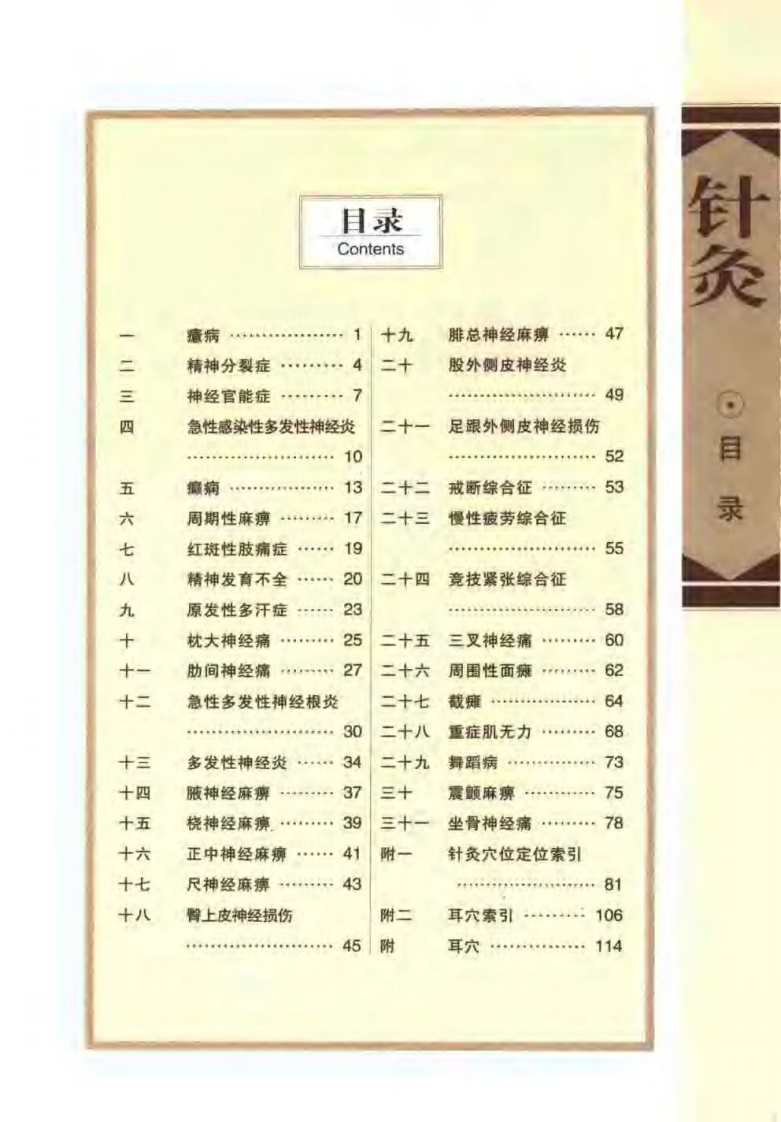 目录
Contents
一 癔病 ·················· 1
二 精神分裂症 ········· 4
三 神经官能症 ········· 7
四 急性感染性多发性神经炎
······················· 10
五 癫痫 ················· 13
六 周期性麻痹 ········· 17
七 红斑性肢痛症 ······ 19
八 精神发育不全 ······ 20
九 原发性多汗症 ······ 23
十 枕大神经痛 ········· 25
十一 肋间神经痛 ········· 27
十二 急性多发性神经根炎
······················· 30
十三 多发性神经炎 ······ 34
十四 腋神经麻痹 ········· 37
十五 桡神经麻痹 ········· 39
十六 正中神经麻痹 ······ 41
十七 尺神经麻痹 ········· 43
十八 臀上皮神经损伤
······················· 45
十九 腓总神经麻痹 ······ 47
二十 股外侧皮神经炎
······················· 49
二十一 足跟外侧皮神经损伤
······················· 52
二十二 戒断综合征 ········· 53
二十三 慢性疲劳综合征
······················· 55
二十四 竞技紧张综合征
······················· 58
二十五 三叉神经痛 ········· 60
二十六 周围性面瘫 ········· 62
二十七 截瘫 ················· 64
二十八 重症肌无力 ········· 68
二十九 舞蹈病 ·············· 73
三十 震颤麻痹 ············ 75
三十一 坐骨神经痛 ········· 78
附一 针灸穴位定位索引
······················· 81
附二 耳穴索引 ·········· 106
附 耳穴 ··············· 114
针灸
目录